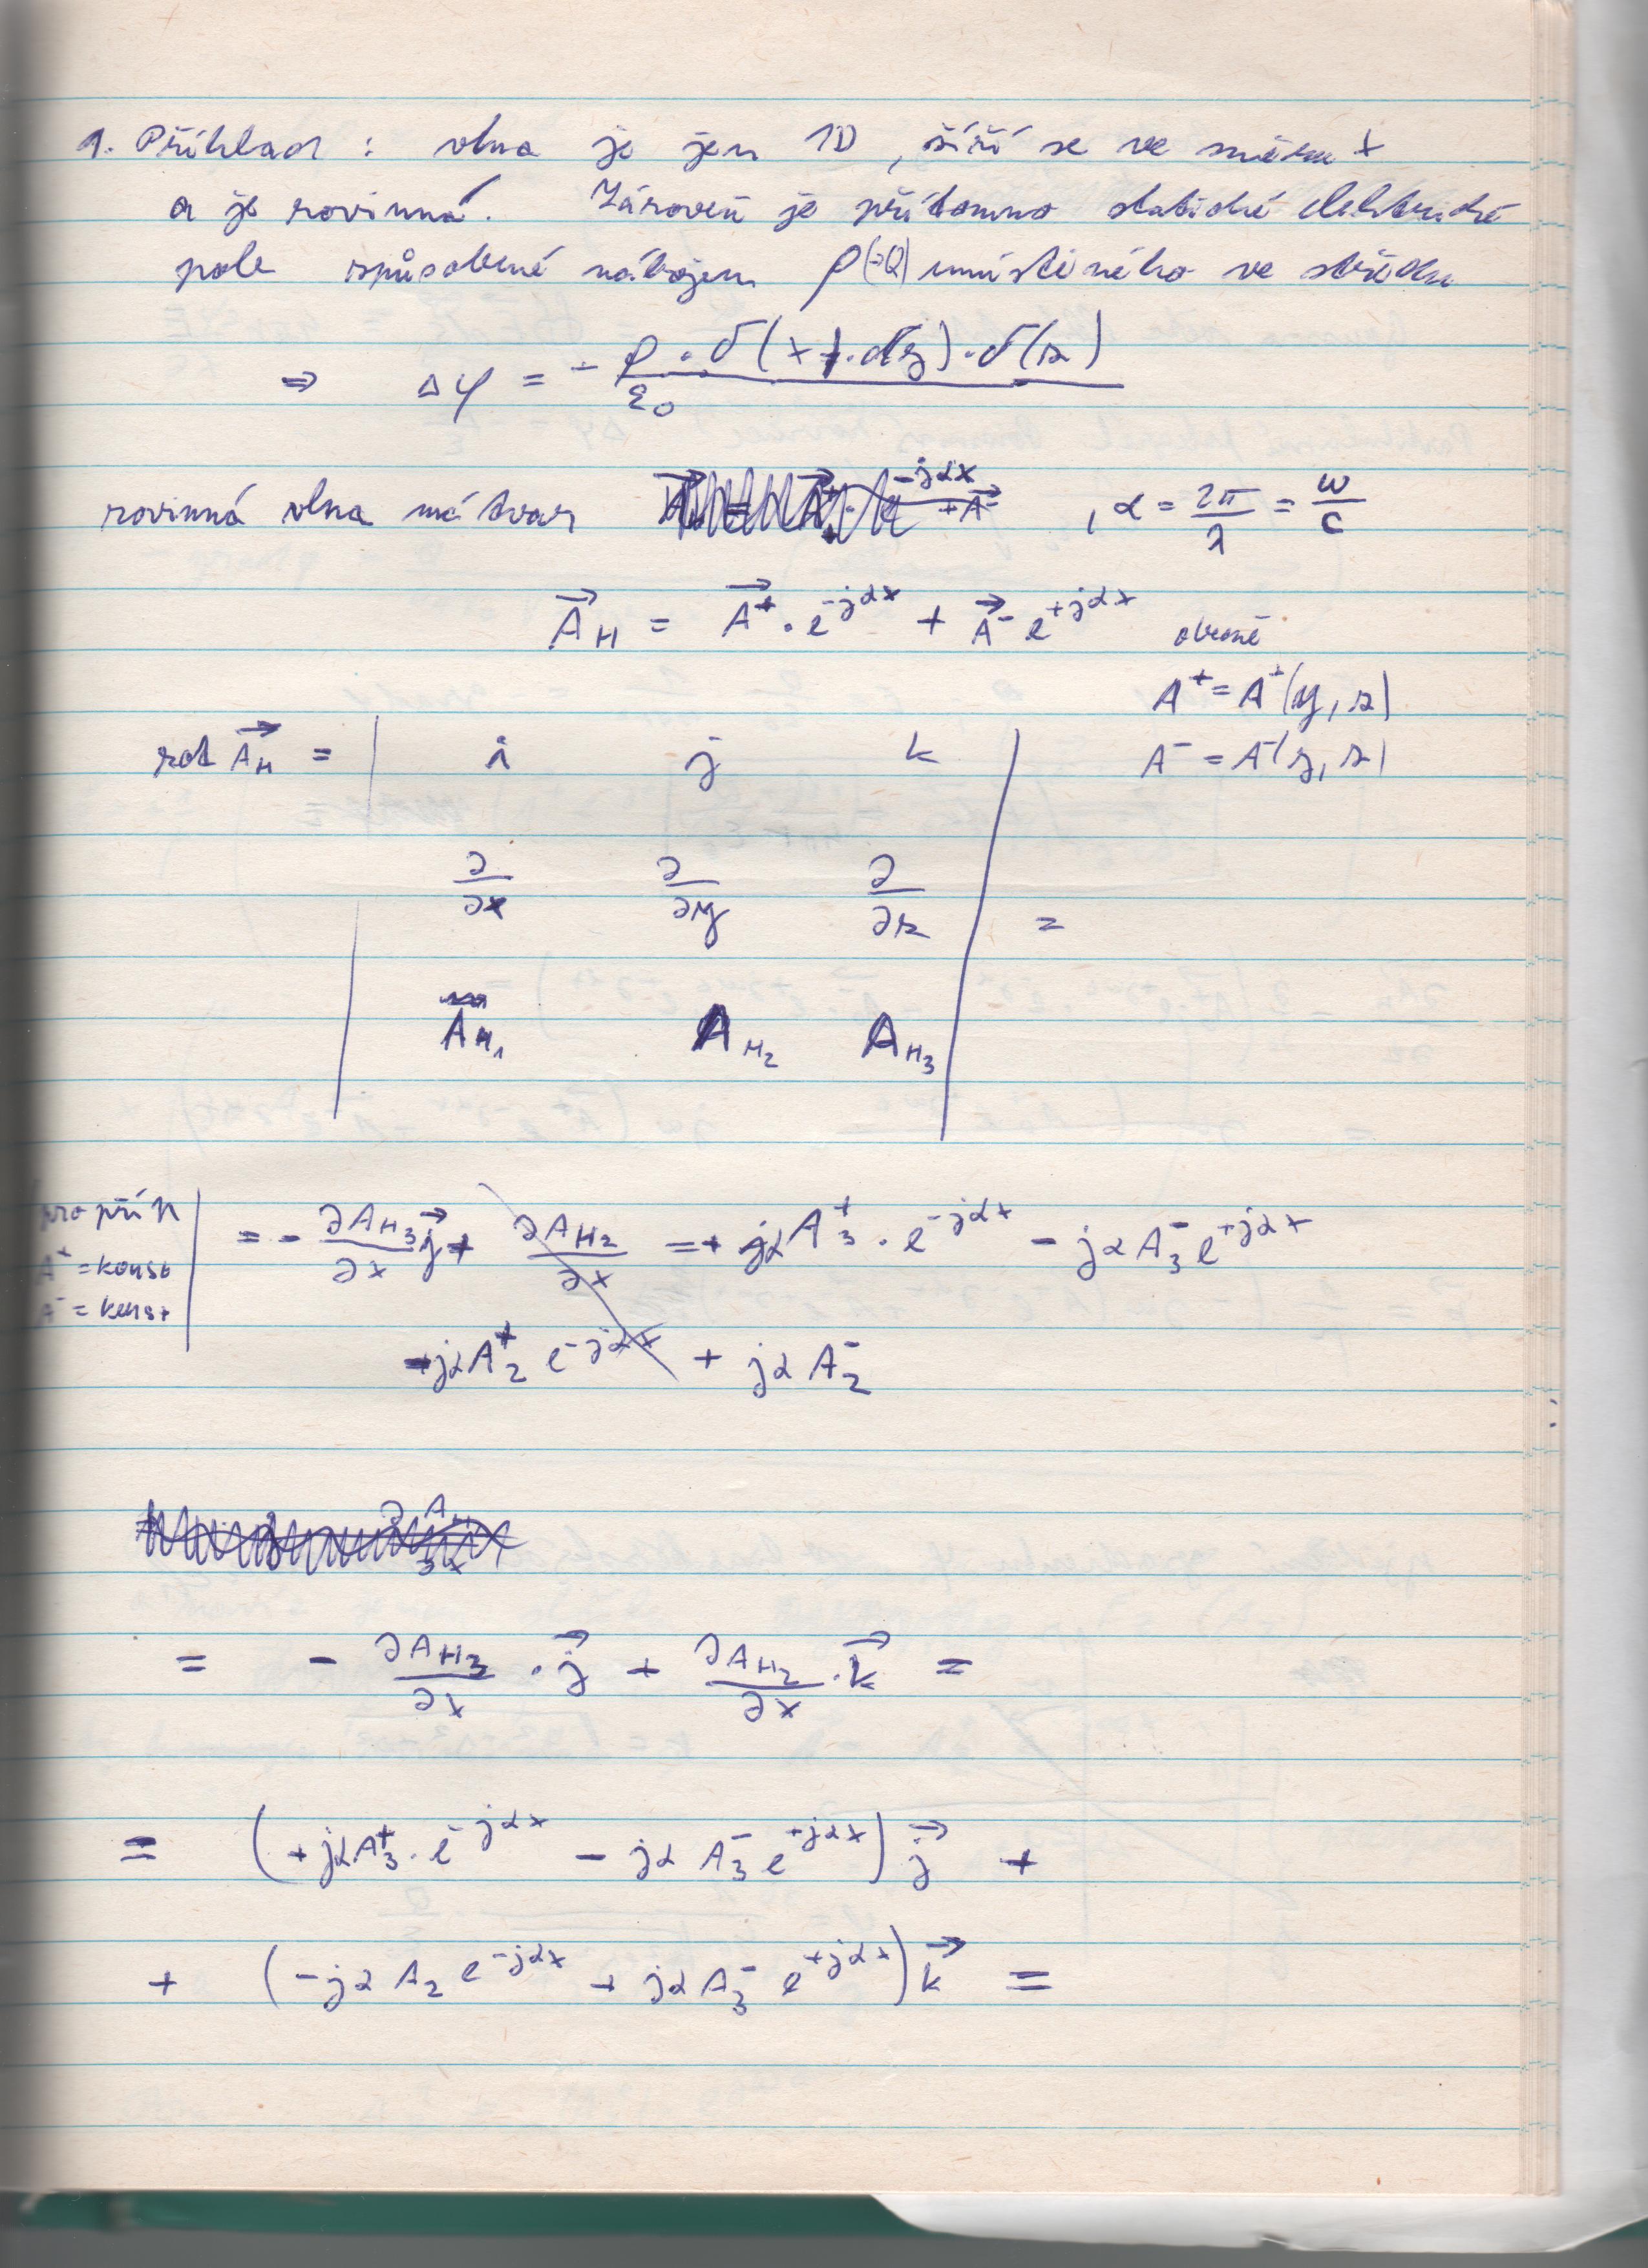 1. Příklad : vlna je jen 1D , šíří se ve směru x
a je rovinná. Zároveň je přítomno statické elektrické
pole způsobené nábojem ρ(=Q) umístěného ve středu
⇒ Δφ = - ρ · δ(x) · δ(y) · δ(z) / ε₀
rovinná vlna má tvar , α = 2π/λ = ω/c
A⃗_H = A⃗⁺ · e^{-jαx} + A⃗⁻ e^{+jαx} obecně
A⁺ = A⁺(y, z)
rot A⃗_H = | i j k | A⁻ = A⁻(y, z)
∂/∂x ∂/∂y ∂/∂z =
A_{H₁} A_{H₂} A_{H₃}
pro příp
A⁺ = konst
A⁻ = konst
= - ∂A_{H3}/∂x j⃗ + ∂A_{H2}/∂x = + jαA₃⁺ · e^{-jαx} - jαA₃⁻ e^{+jαx}
-jαA₂⁺ e^{-jαx} + jαA₂⁻
= - ∂A_{H3}/∂x · j⃗ + ∂A_{H2}/∂x · k⃗ =
= (+jαA₃⁺ · e^{-jαx} - jα A₃⁻ e^{+jαx}) j⃗ +
+ (-jα A₂ e^{-jαx} + jα A₃⁻ e^{+jαx}) k⃗ =